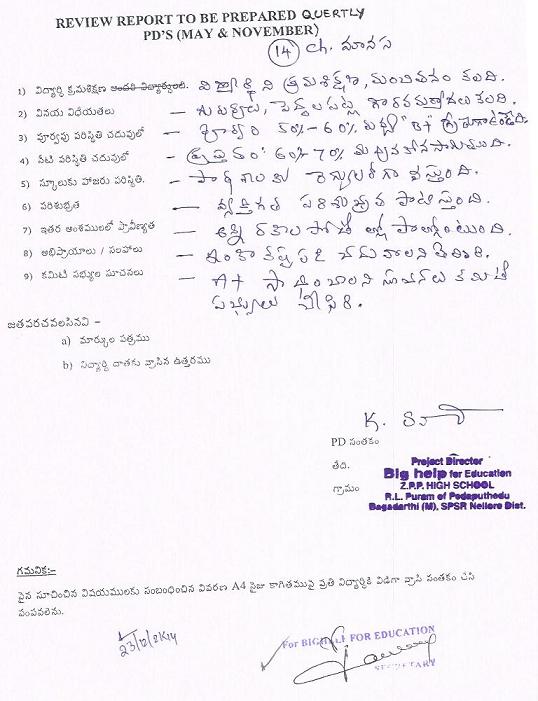 REVIEW REPORT TO BE PREPARED QUERTLY
PD'S (MAY & NOVEMBER)
14 Ch. మానస
1) విద్యార్ధి క్రమశిక్షణ అందరి విద్యార్థులది. విద్యార్థిని క్రమశిక్షణ, మంచితనం కలది.
2) వినయ విధేయతలు — గురువులు, పెద్దలపట్ల గౌరవమర్యాదలు కలది.
3) పూర్వపు పరిస్థితి చదువులో — పూర్వం 50%-60% మధ్య "B+" గ్రేడులో ఉండేది.
4) నేటి పరిస్థితి చదువులో — ప్రస్తుతం: 60%-70% మధ్య కొనసాగుతుంది.
5) స్కూలుకు హాజరు పరిస్థితి. — పాఠశాలకు రెగ్యులర్‌గా వస్తుంది.
6) పరిశుభ్రత — వ్యక్తిగత పరిశుభ్రత పాటిస్తుంది.
7) ఇతర అంశములలో ప్రావీణ్యత — అన్ని రకాల పోటీల్లో పాల్గొంటుంది.
8) అభిప్రాయాలు / సలహాలు — ఇంకా కష్టపడి చదవాలని తెలిపారు.
9) కమిటి సభ్యుల సూచనలు — A+ సాధించాలని సూచనలు కమిటీ
సభ్యులు చేసిరి.
జతపరచవలసినవి –
a) మార్కుల పత్రము
b) విద్యార్ధి దాతకు వ్రాసిన ఉత్తరము
K.
PD సంతకం
తేది.
గ్రామం
Project Director
Big help for Education
Z.P.P. HIGH SCHOOL
R.L. Puram of Pedaputhedu
Bagadarthi (M), SPSR Nellore Dist.
గమనిక:-
పైన సూచించిన విషయములకు సంబంధించిన వివరణ A4 సైజు కాగితముపై ప్రతి విద్యార్ధికి విడిగా వ్రాసి సంతకం చేసి
పంపవలెను.
23/12/2k14
For BIGHELP FOR EDUCATION
SECRETARY